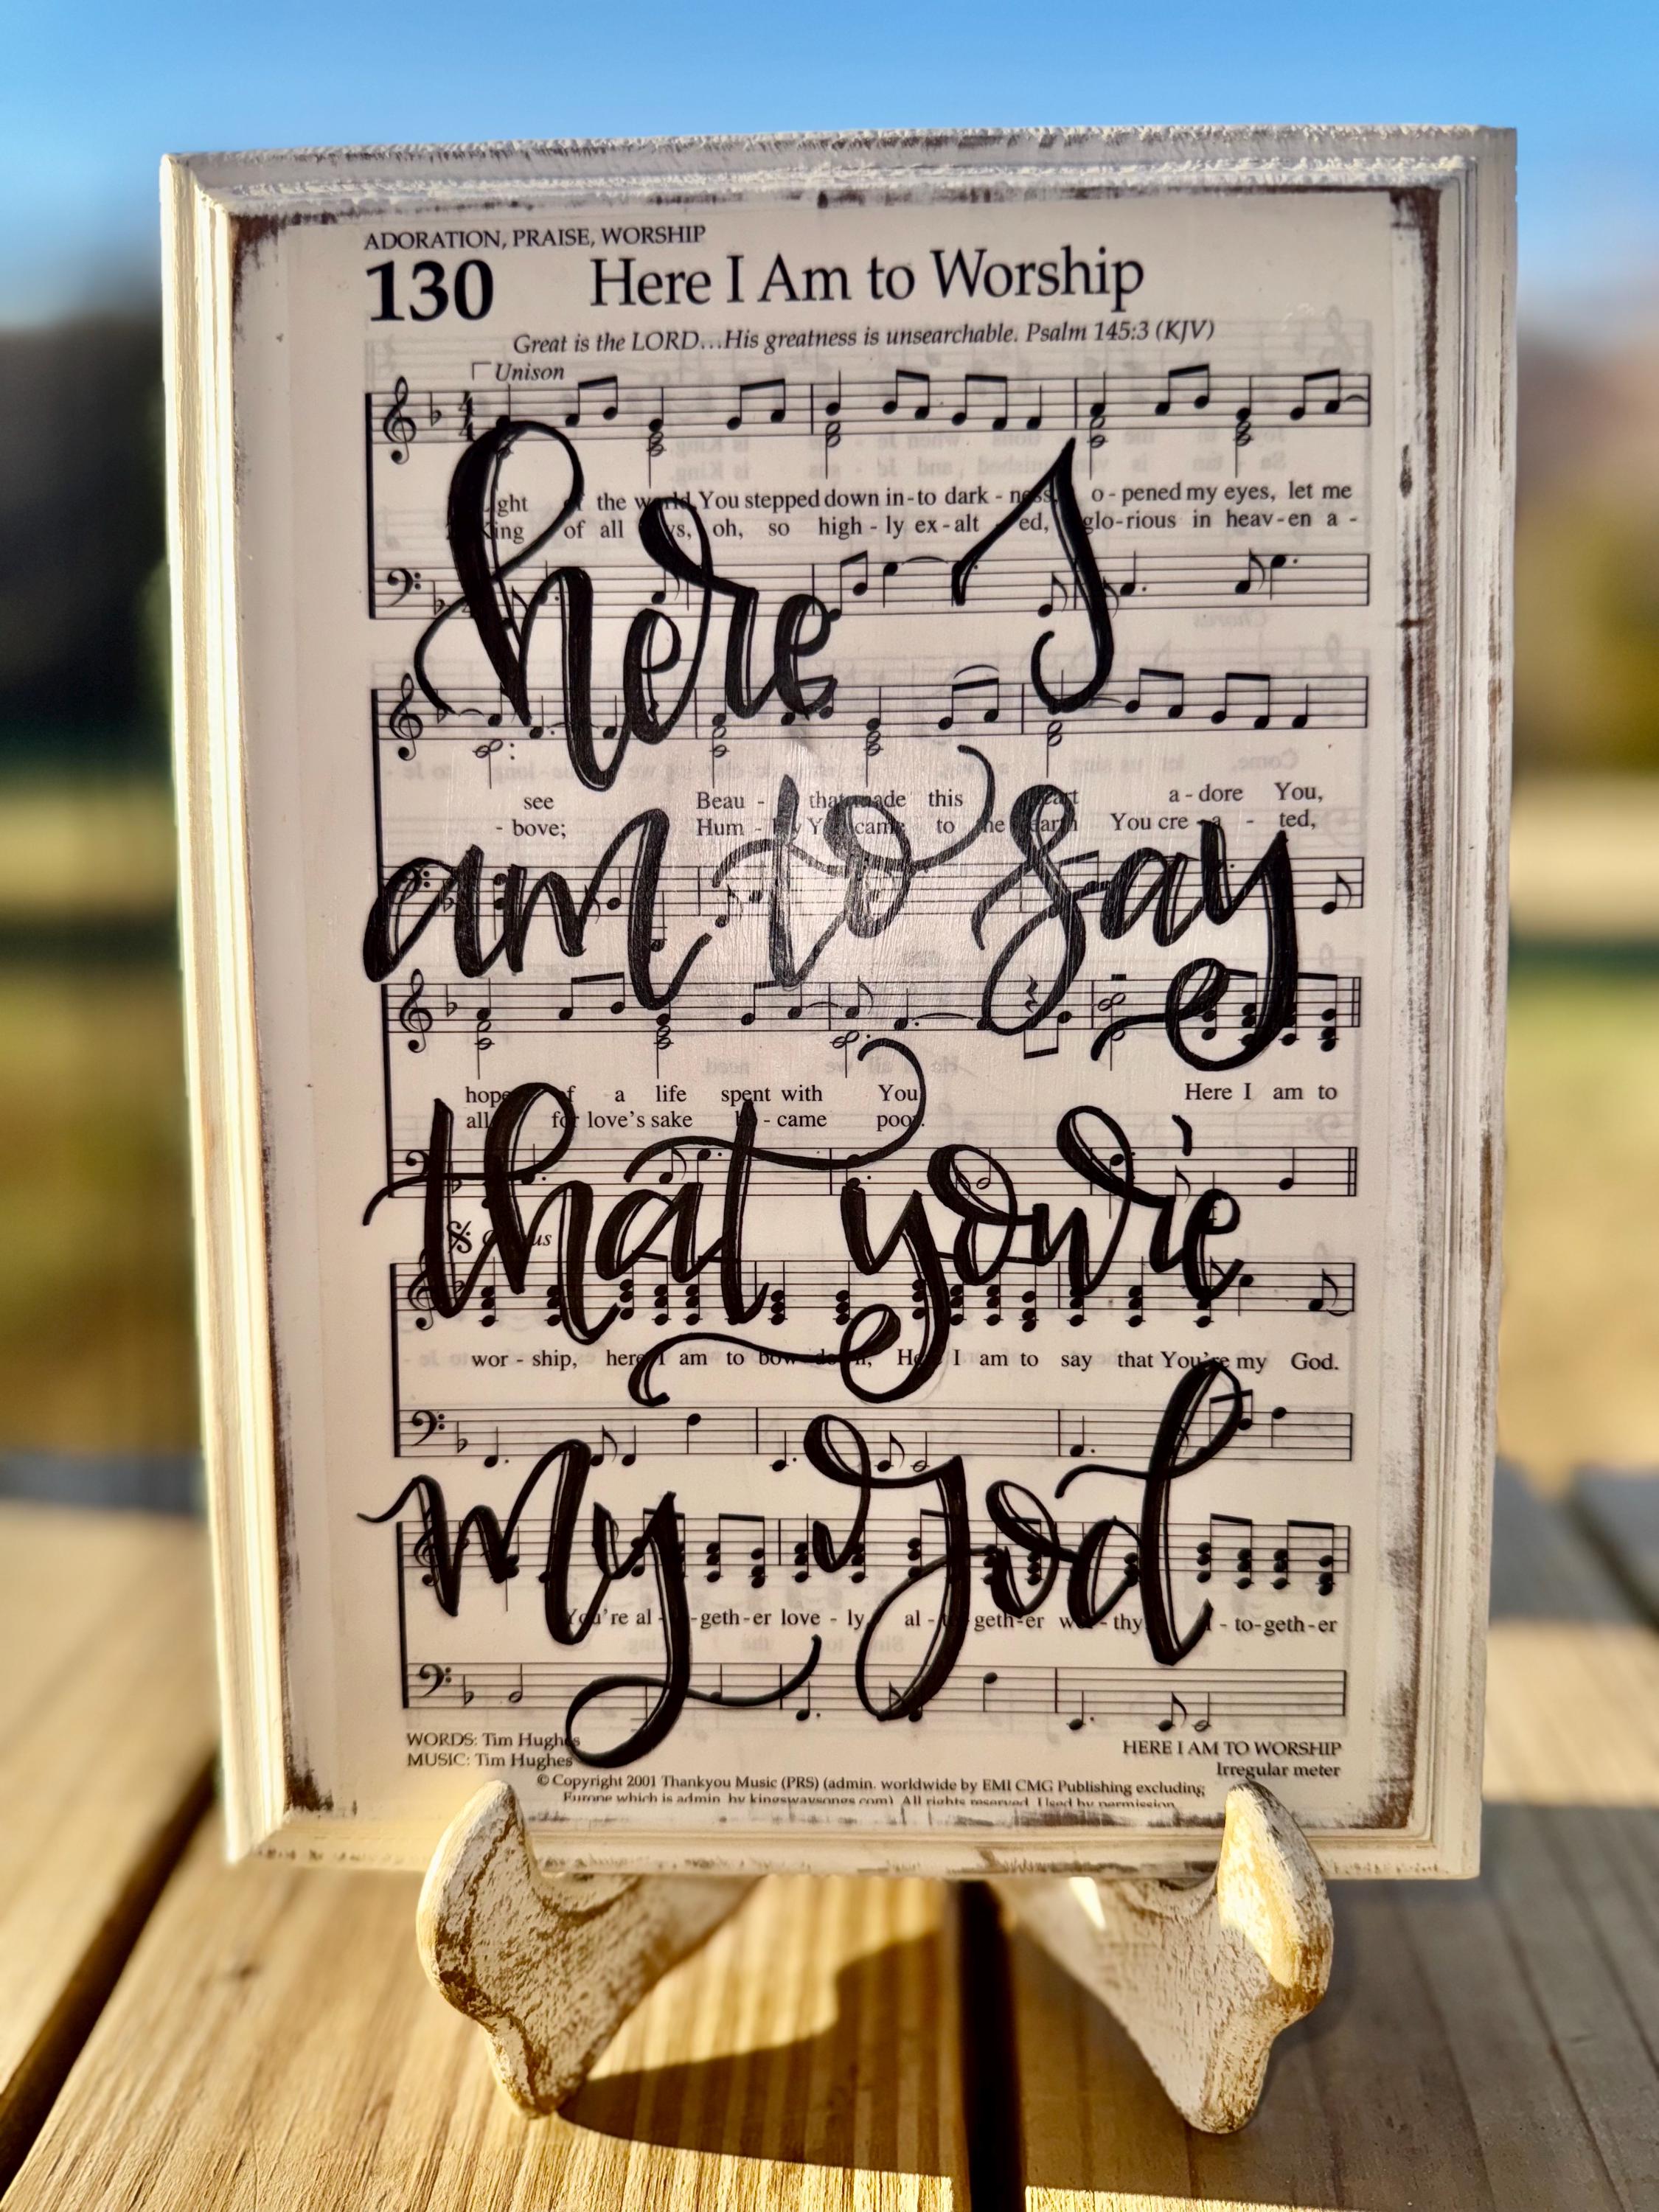 ADORATION, PRAISE, WORSHIP
130 Here I Am to Worship
Great is the LORD...His greatness is unsearchable. Psalm 145:3 (KJV)
Unison
the world, You stepped down in-to dark - ness, o - pened my eyes, let me
King of all oh, so high - ly ex - alt - ed, glo-rious in heav-en a -
here I
see Beau - that made this heart a - dore You,
- bove; Hum - You came to the earth You cre - a - ted,
am to say
hope of a life spent with You Here I am to
all for love's sake be - came poor.
that you're
Chorus
wor - ship, here I am to bow down, Here I am to say that You're my God.
my God
You're al - geth - er love - ly, al - to - geth-er wor - thy, - to-geth-er
WORDS: Tim Hughes
MUSIC: Tim Hughes
HERE I AM TO WORSHIP
Irregular meter
© Copyright 2001 Thankyou Music (PRS) (admin. worldwide by EMI CMG Publishing excluding
Europe which is admin. by kingswaysongs.com). All rights reserved. Used by permission.